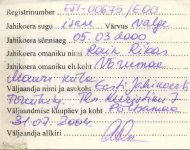 Registrinumber EST-00675/E00
Jahikoera sugu isane Värvus Valge
Jahikoera sünniaeg 05.03 2000
Jahikoera omaniku nimi Rain Rikas
Jahikoera omaniku el.koht Võrumaa
küla
Väljaandja nimi ja asukoht Eesti Jahikoerte
Tõuühing. Tln. 7
Väljaandmise kuupäev ja koht
31.07.2001
Väljaandja allkiri